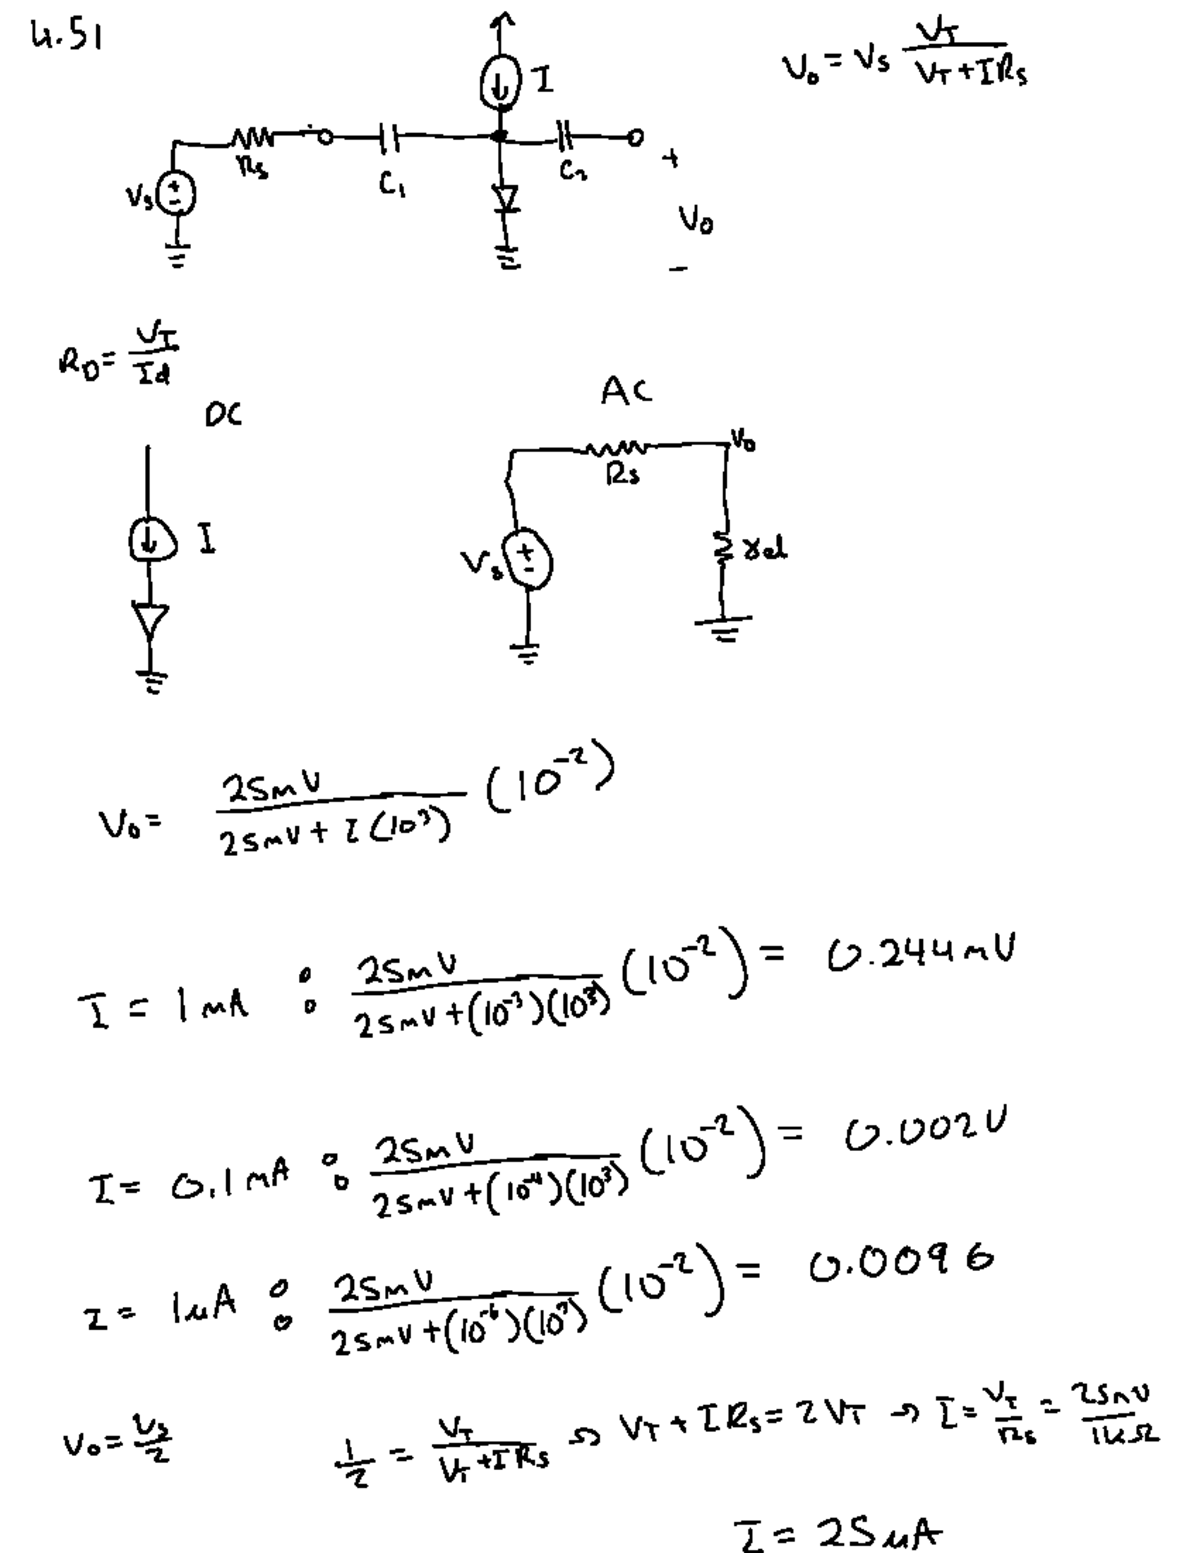 4.51
V₀ = Vs VT / (VT + IRs)
I
Rs
C₁
C₂
+
Vs
V₀
-
R_D = VT / Id
DC
AC
V₀
Rs
I
Vs
rd
V₀ = 25mV / (25mV + I(10³)) (10⁻²)
I = 1mA : 25mV / (25mV + (10⁻³)(10³)) (10⁻²) = 0.244mV
I = 0.1mA : 25mV / (25mV + (10⁻⁴)(10³)) (10⁻²) = 0.002V
I = 1μA : 25mV / (25mV + (10⁻⁶)(10³)) (10⁻²) = 0.0096
V₀ = Vs/2 1/2 = VT / (VT + IRs) → VT + IRs = 2VT → I = VT/Rs = 25mV / 1kΩ
I = 25μA